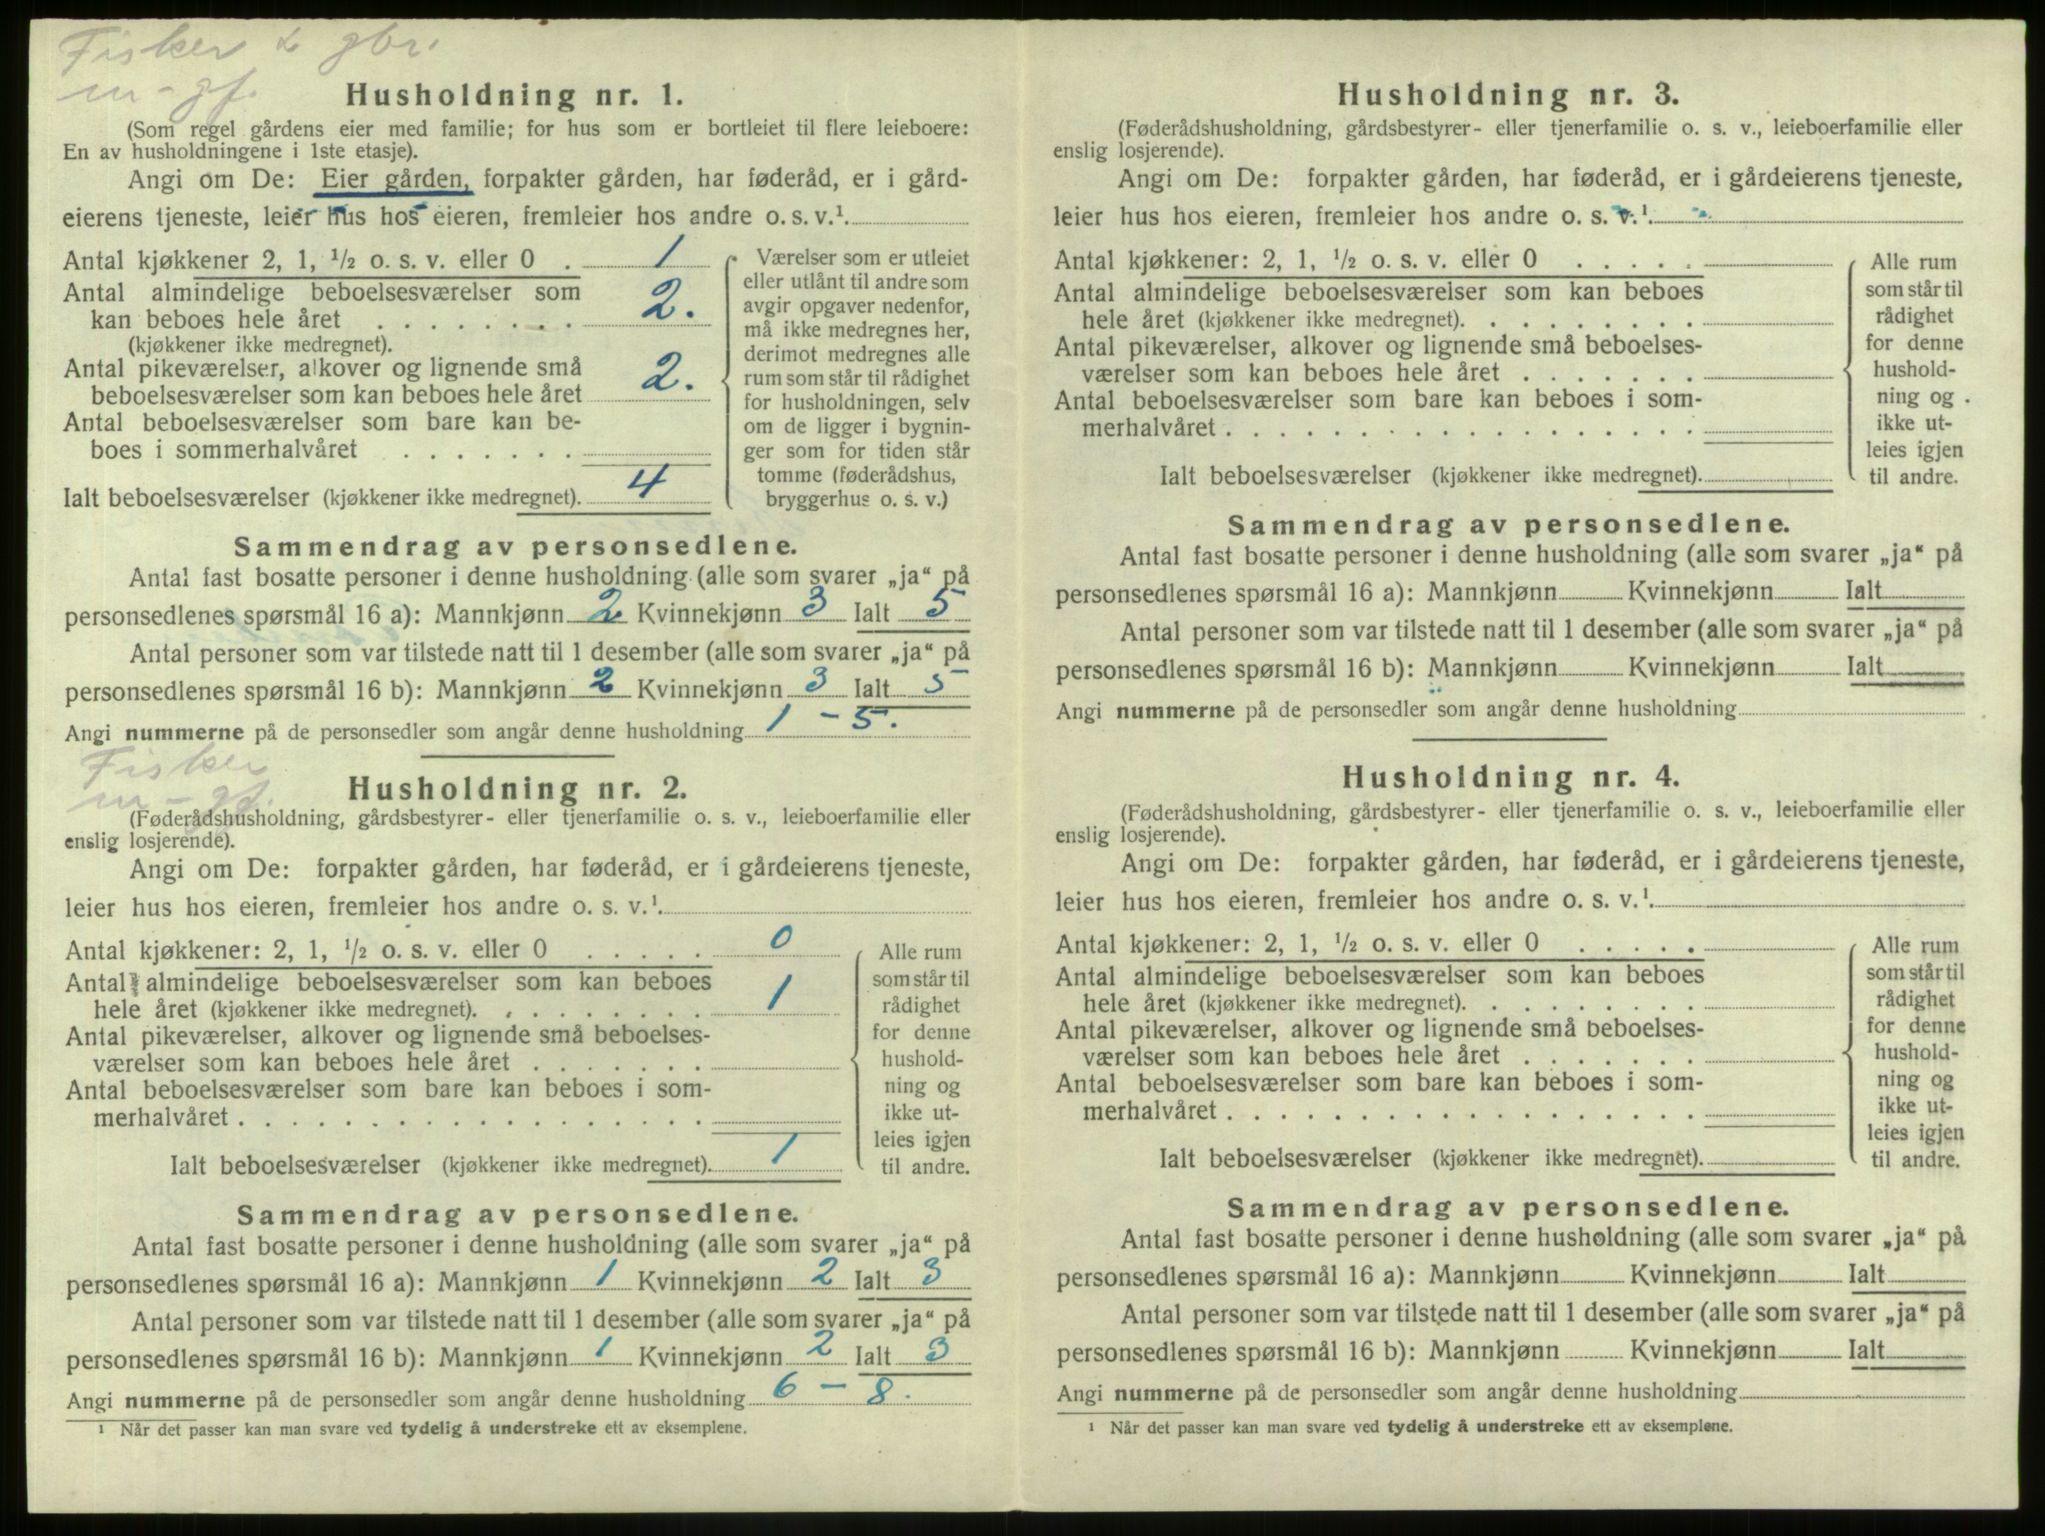 Fisker & gbr.
m-gf.
Husholdning nr. 1.
(Som regel gårdens eier med familie; for hus som er bortleiet til flere leieboere:
En av husholdningene i 1ste etasje).
Angi om De: Eier gården, forpakter gården, har føderåd, er i gård-
eierens tjeneste, leier hus hos eieren, fremleier hos andre o. s. v.¹
Antal kjøkkener 2, 1, ½ o. s. v. eller 0 . 1
Antal almindelige beboelsesværelser som
kan beboes hele året . . . . . . . . 2.
(kjøkkener ikke medregnet).
Antal pikeværelser, alkover og lignende små
beboelsesværelser som kan beboes hele året 2.
Antal beboelsesværelser som bare kan be-
boes i sommerhalvåret . . . . . . .
Ialt beboelsesværelser (kjøkkener ikke medregnet). 4
Værelser som er utleiet
eller utlånt til andre som
avgir opgaver nedenfor,
må ikke medregnes her,
derimot medregnes alle
rum som står til rådighet
for husholdningen, selv
om de ligger i bygnin-
ger som for tiden står
tomme (føderådshus,
bryggerhus o. s. v.)
Sammendrag av personsedlene.
Antal fast bosatte personer i denne husholdning (alle som svarer „ja“ på
personsedlenes spørsmål 16 a): Mannkjønn 2 Kvinnekjønn 3 Ialt 5
Antal personer som var tilstede natt til 1 desember (alle som svarer „ja“ på
personsedlenes spørsmål 16 b): Mannkjønn 2 Kvinnekjønn 3 Ialt 5
Angi nummerne på de personsedler som angår denne husholdning 1 - 5.
Fisker
m-gf.
Husholdning nr. 2.
(Føderådshusholdning, gårdsbestyrer- eller tjenerfamilie o. s. v., leieboerfamilie eller
enslig losjerende).
Angi om De: forpakter gården, har føderåd, er i gårdeierens tjeneste,
leier hus hos eieren, fremleier hos andre o. s. v.¹.
Antal kjøkkener: 2, 1, ½ o. s. v. eller 0 . . . . . 0
Antal almindelige beboelsesværelser som kan beboes
hele året (kjøkkener ikke medregnet). . . . . . . . . 1
Antal pikeværelser, alkover og lignende små beboelses-
værelser som kan beboes hele året . . . . . . .
Antal beboelsesværelser som bare kan beboes i som-
merhalvåret . . . . . . . . . . . . . . . . . .
Ialt beboelsesværelser (kjøkkener ikke medregnet). 1
Alle rum
som står til
rådighet
for denne
hushold-
ning og
ikke ut-
leies igjen
til andre.
Sammendrag av personsedlene.
Antal fast bosatte personer i denne husholdning (alle som svarer „ja“ på
personsedlenes spørsmål 16 a): Mannkjønn 1 Kvinnekjønn 2 Ialt 3
Antal personer som var tilstede natt til 1 desember (alle som svarer „ja“ på
personsedlenes spørsmål 16 b): Mannkjønn 1 Kvinnekjønn 2 Ialt 3
Angi nummerne på de personsedler som angår denne husholdning 6 - 8.
¹ Når det passer kan man svare ved tydelig å understreke ett av eksemplene.
Husholdning nr. 3.
(Føderådshusholdning, gårdsbestyrer- eller tjenerfamilie o. s. v., leieboerfamilie eller
enslig losjerende).
Angi om De: forpakter gården, har føderåd, er i gårdeierens tjeneste,
leier hus hos eieren, fremleier hos andre o. s. v.¹.
Antal kjøkkener: 2, 1, ½ o. s. v. eller 0 . . . . .
Antal almindelige beboelsesværelser som kan beboes
hele året (kjøkkener ikke medregnet). . . . . . . . .
Antal pikeværelser, alkover og lignende små beboelses-
værelser som kan beboes hele året . . . . . . .
Antal beboelsesværelser som bare kan beboes i som-
merhalvåret . . . . . . . . . . . . . . . . . .
Ialt beboelsesværelser (kjøkkener ikke medregnet).
Alle rum
som står til
rådighet
for denne
hushold-
ning og
ikke ut-
leies igjen
til andre.
Sammendrag av personsedlene.
Antal fast bosatte personer i denne husholdning (alle som svarer „ja“ på
personsedlenes spørsmål 16 a): Mannkjønn Kvinnekjønn Ialt
Antal personer som var tilstede natt til 1 desember (alle som svarer „ja“ på
personsedlenes spørsmål 16 b): Mannkjønn Kvinnekjønn Ialt
Angi nummerne på de personsedler som angår denne husholdning
Husholdning nr. 4.
(Føderådshusholdning, gårdsbestyrer- eller tjenerfamilie o. s. v., leieboerfamilie eller
enslig losjerende).
Angi om De: forpakter gården, har føderåd, er i gårdeierens tjeneste,
leier hus hos eieren, fremleier hos andre o. s. v.¹.
Antal kjøkkener: 2, 1, ½ o. s. v. eller 0 . . . . .
Antal almindelige beboelsesværelser som kan beboes
hele året (kjøkkener ikke medregnet). . . . . . . . .
Antal pikeværelser, alkover og lignende små beboelses-
værelser som kan beboes hele året . . . . . . .
Antal beboelsesværelser som bare kan beboes i som-
merhalvåret . . . . . . . . . . . . . . . . . .
Ialt beboelsesværelser (kjøkkener ikke medregnet).
Alle rum
som står til
rådighet
for denne
hushold-
ning og
ikke ut-
leies igjen
til andre.
Sammendrag av personsedlene.
Antal fast bosatte personer i denne husholdning (alle som svarer „ja“ på
personsedlenes spørsmål 16 a): Mannkjønn Kvinnekjønn Ialt
Antal personer som var tilstede natt til 1 desember (alle som svarer „ja“ på
personsedlenes spørsmål 16 b): Mannkjønn Kvinnekjønn Ialt
Angi nummerne på de personsedler som angår denne husholdning
¹ Når det passer kan man svare ved tydelig å understreke ett av eksemplene.